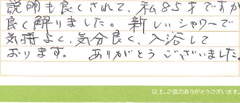 説明も良くされて、私85才ですが
良く解りました。新しいシャワーで
気持よく、気分良く、入浴して
おります。ありがとうございました。
以上、ご協力ありがとうございます。